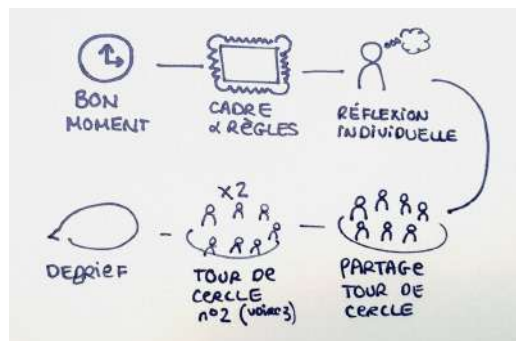 BON
MOMENT
CADRE
& RÈGLES
RÉFLEXION
INDIVIDUELLE
PARTAGE
TOUR DE
CERCLE
x2
TOUR DE
CERCLE
n°2 (voire 3)
DEBRIEF